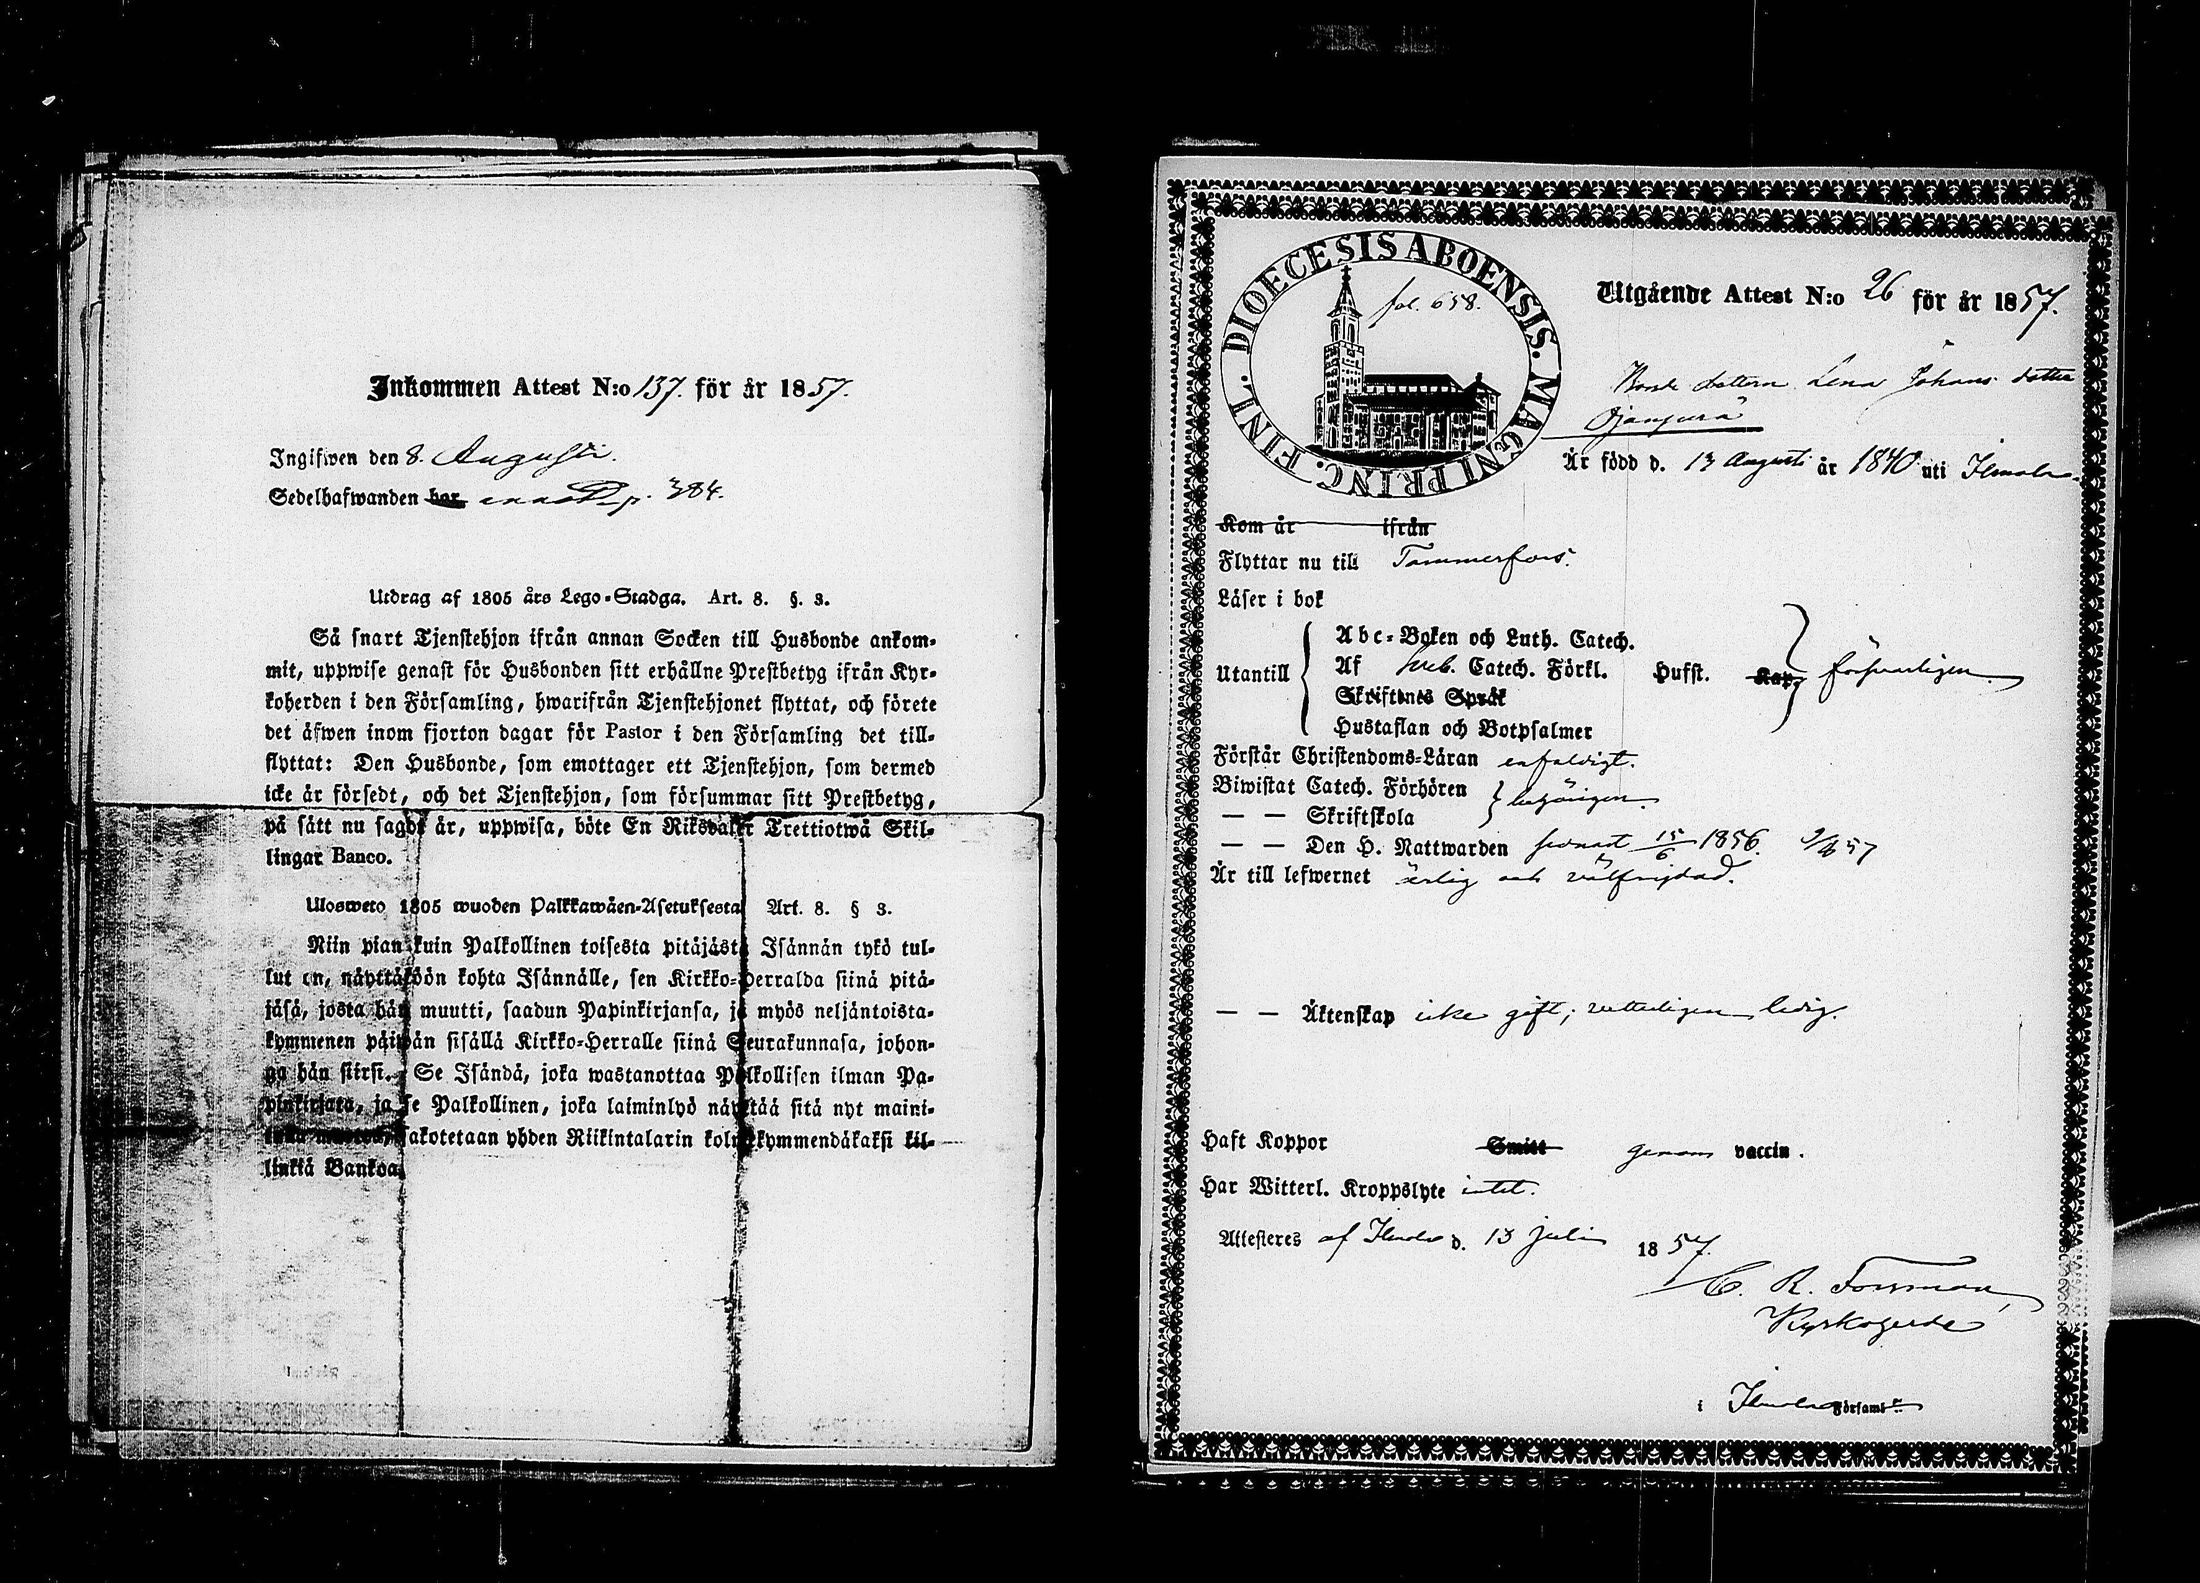 Inkommen Attest N:o 137. för år 1857.
Ingifwen den 8. Augusti.
Sedelhafwanden har p. 384.
Utdrag af 1805 års Lego-Stadga. Art. 8. §. 3.
Så snart Tjenstehjon ifrån annan Socken till Husbonde ankom-
mit, uppwise genast för Husbonden sitt erhållne Prestbetyg ifrån Kyr-
koherden i den Församling, hwarifrån Tjenstehjonet flyttat, och förete
det äfwen inom fjorton dagar för Pastor i den Församling det till-
flyttat: Den Husbonde, som emottager ett Tjenstehjon, som dermed
icke är försedt, och det Tjenstehjon, som försummar sitt Prestbetyg,
på sätt nu sagdt är, uppwisa, böte En Riksdaler Trettiotwå Skil-
lingar Banco.
Ulosweto 1805 wuoden Palkkawäen-Asetuksesta Art. 8. § 3.
Niin pian kuin Palkollinen toisesta pitäjästä Isännän tykö tul-
lut on, näyttäköön kohta Isännälle, sen Kirkko-Herralda siinä pitä-
jäsä, josta hän muutti, saadun Papinkirjansa, ja myös neljäntoista-
kymmenen päiwän sisällä Kirkko-Herralle siinä Seurakunnasa, johon-
ga hän siirsi. Se Isändä, joka wastanottaa Palkollisen ilman Pa-
pinkirjata, ja se Palkollinen, joka laiminlyö näyttää sitä nyt maini-
sakotetaan yhden Riikintalarin kolmekymmendäkaksi kil-
linkiä Bankoa.
DIOECESIS ABOENSIS. MAGNI PRINC. FINL.
fol. 658.
Utgående Attest N:o 26 för år 1857.
Bonde dottern Lena Johans dotter
Är född d. 13 Augusti år 1840 uti Ilmola
Kom år ifrån
Flyttar nu till Tammerfors.
Läser i bok
Utantill
Abc-Boken och Luth. Catech.
Af Sveb. Catech. Förkl. Hufst. Kap. försvarligen
Skriftenes Språk
Hustaflan och Botpsalmer
Förstår Christendoms-Läran enfaldigt.
Biwistat Catech. Förhören
behörigen.
— — Skriftskola
— — Den H. Nattwarden senast 15/6 1856.
Är till lefwernet ärlig och välfrejdad.
— — Äktenskap icke gift; vetterligen ledig.
Haft Koppor Smitt genom vaccin.
Har Witterl. Kroppslyte intet.
Attesteres af Ilmola d. 13 Juli 1857.
C. R. Forsman,
Kyrkoherde
i Ilmola Församl